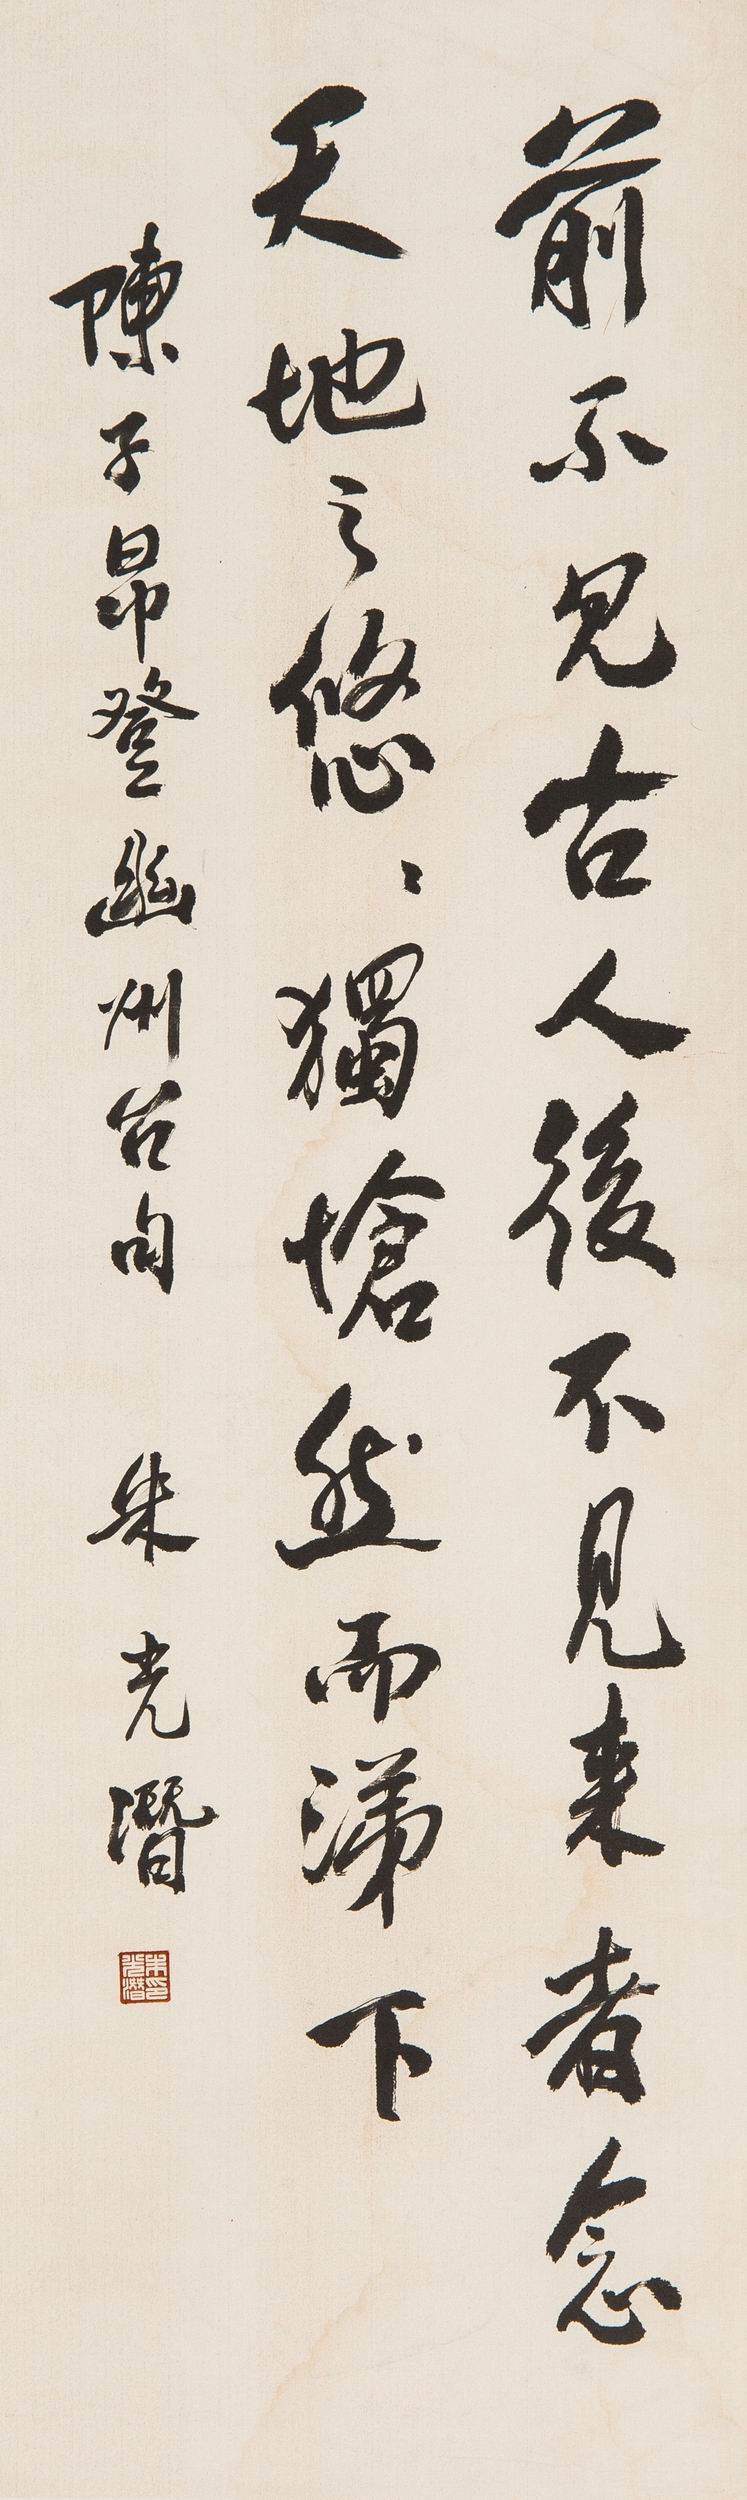 前不見古人後不見来者念
天地之悠〻獨愴然而涕下
陳子昂登幽州台句 朱光潛
朱光潛印